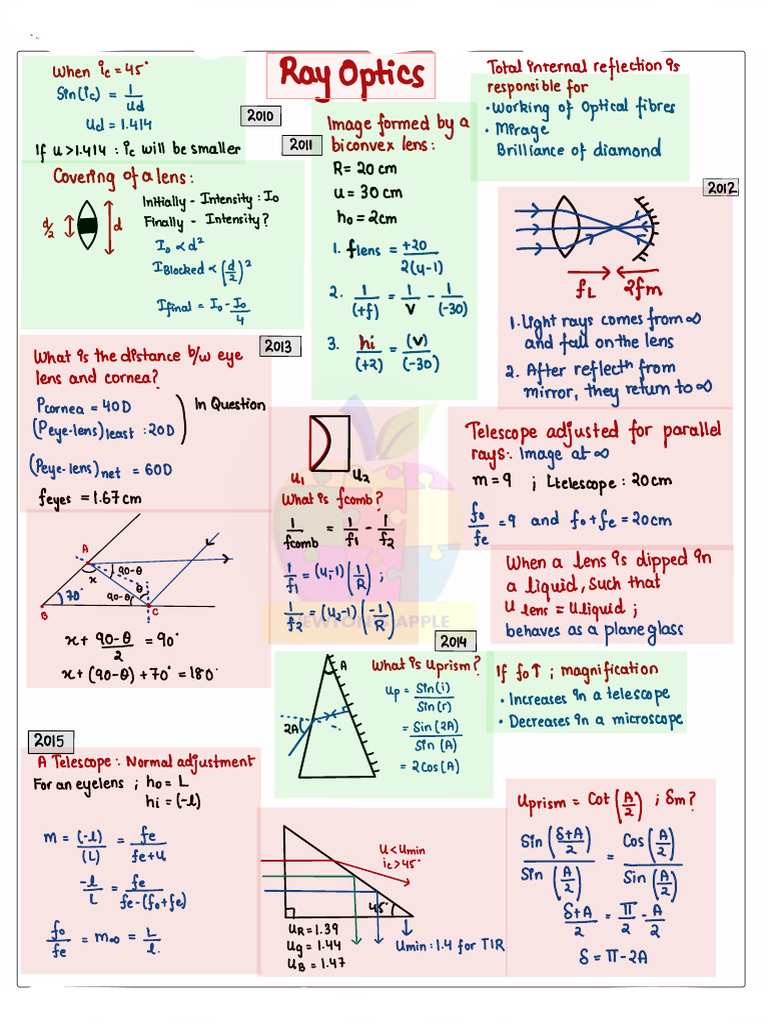 Ray Optics
When ic = 45°
Sin(ic) = 1/ud
ud = 1.414
If u > 1.414 : ic will be smaller
2010
Covering of a lens:
d/2
d
Initially - Intensity : Io
Finally - Intensity?
Io ∝ d²
IBlocked ∝ (d/2)²
Ifinal = Io - Io/4
2011
Image formed by a
biconvex lens:
R = 20 cm
u = 30 cm
ho = 2cm
1. flens = +20/2(u-1)
2. 1/(+f) = 1/V - 1/(-30)
3. hi/(+2) = (V)/(-30)
Total internal reflection is
responsible for
• Working of Optical fibres
• Mirage
Brilliance of diamond
2012
fL
2fm
1. Light rays comes from ∞
and fall on the lens
2. After reflectn from
mirror, they return to ∞
2013
What is the distance b/w eye
lens and cornea?
Pcornea = 40D
(Peye-lens)least : 20D
In Question
(Peye-lens)net = 60D
feyes = 1.67 cm
A
x
90-θ
θ
70°
90-θ
B
C
x + 90-θ/2 = 90°
x + (90-θ) + 70° = 180°
u1
u2
What is fcomb?
1/fcomb = 1/f1 - 1/f2
1/f1 = (u1-1)(1/R) ;
1/f2 = (u2-1)(-1/R)
NEWTONS APPLE
Telescope adjusted for parallel
rays: Image at ∞
m = 9 ; Ltelescope : 20cm
fo/fe = 9 and fo + fe = 20cm
When a lens is dipped in
a liquid, such that
u lens = u liquid ;
behaves as a plane glass
2014
A
2A
What is Uprism?
Up = Sin(i)/Sin(r)
= Sin(2A)/Sin(A)
= 2Cos(A)
If fo↑ ; magnification
• Increases in a telescope
• Decreases in a microscope
2015
A Telescope : Normal adjustment
For an eyelens ; ho = L
hi = (-l)
m = (-l)/(L) = fe/fe+u
-l/L = fe/fe-(fo+fe)
fo/fe = m∞ = L/l.
u < umin
ic > 45°
45°
uR = 1.39
ug = 1.44
uB = 1.47
umin : 1.4 for TIR
Uprism = Cot(A/2) ; δm?
Sin(δ+A/2)/Sin(A/2) = Cos(A/2)/Sin(A/2)
δ+A/2 = π/2 - A/2
δ = π - 2A